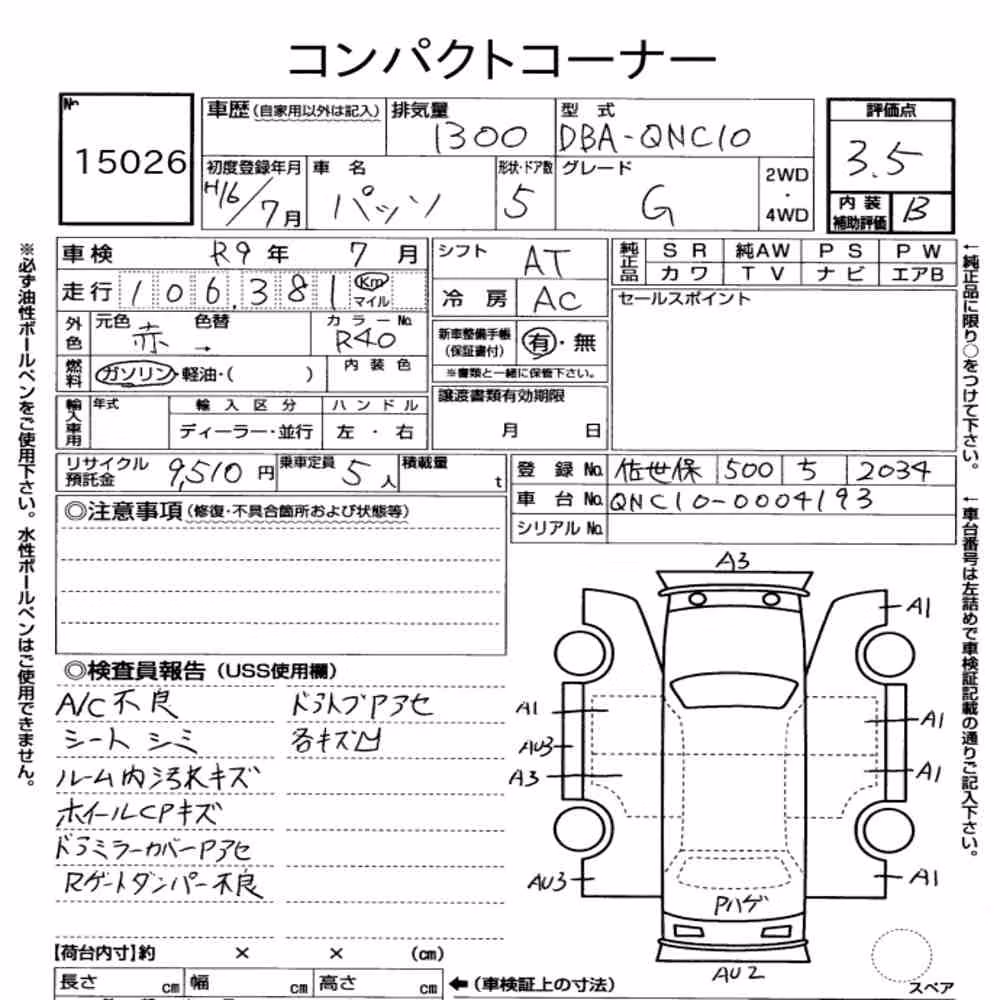 コンパクトコーナー
No
15026
車歴 (自家用以外は記入)
排気量
1300
型式
DBA-QNC10
評価点
3.5
初度登録年月
H16/7月
車名
パッソ
形状・ドア数
5
グレード
G
2WD
・
4WD
内装
補助評価
B
※必ず油性ボールペンをご使用下さい。水性ボールペンはご使用できません。
車検 R9年 7月
走行 106,381 Km
マイル
外色
元色 赤
色替 →
カラーNo.
R40
燃料
ガソリン・軽油・( )
内装色
輸入車用
年式
輸入区分
ディーラー・並行
ハンドル
左・右
シフト
AT
冷房 AC
新車整備手帳
(保証書付)
有・無
※書類と一緒に保管下さい。
譲渡書類有効期限
月 日
純正品
SR 純AW PS PW
カワ TV ナビ エアB
セールスポイント
←純正品に限り○をつけて下さい。
リサイクル
預託金
9,510円
乗車定員 5人
積載量 t
登録No. 佐世保 500 ち 2034
車台No. QNC10-0004193
シリアルNo.
←車台番号は左詰めで車検証記載の通りご記入下さい。
◎注意事項(修復・不具合箇所および状態等)
◎検査員報告 (USS使用欄)
A/C不良
シートシミ
ルーム内汚れキズ
ホイールCPキズ
ドアミラーカバーPアセ
Rゲートダンパー不良
ドアトブPアセ
各キズ凹
A3
A1
A1
A1
AU3
A3
A1
AU3
A1
Pハゲ
AU2
スペア
【荷台内寸】約 × × (cm)
長さ cm 幅 cm 高さ cm ←(車検証上の寸法)